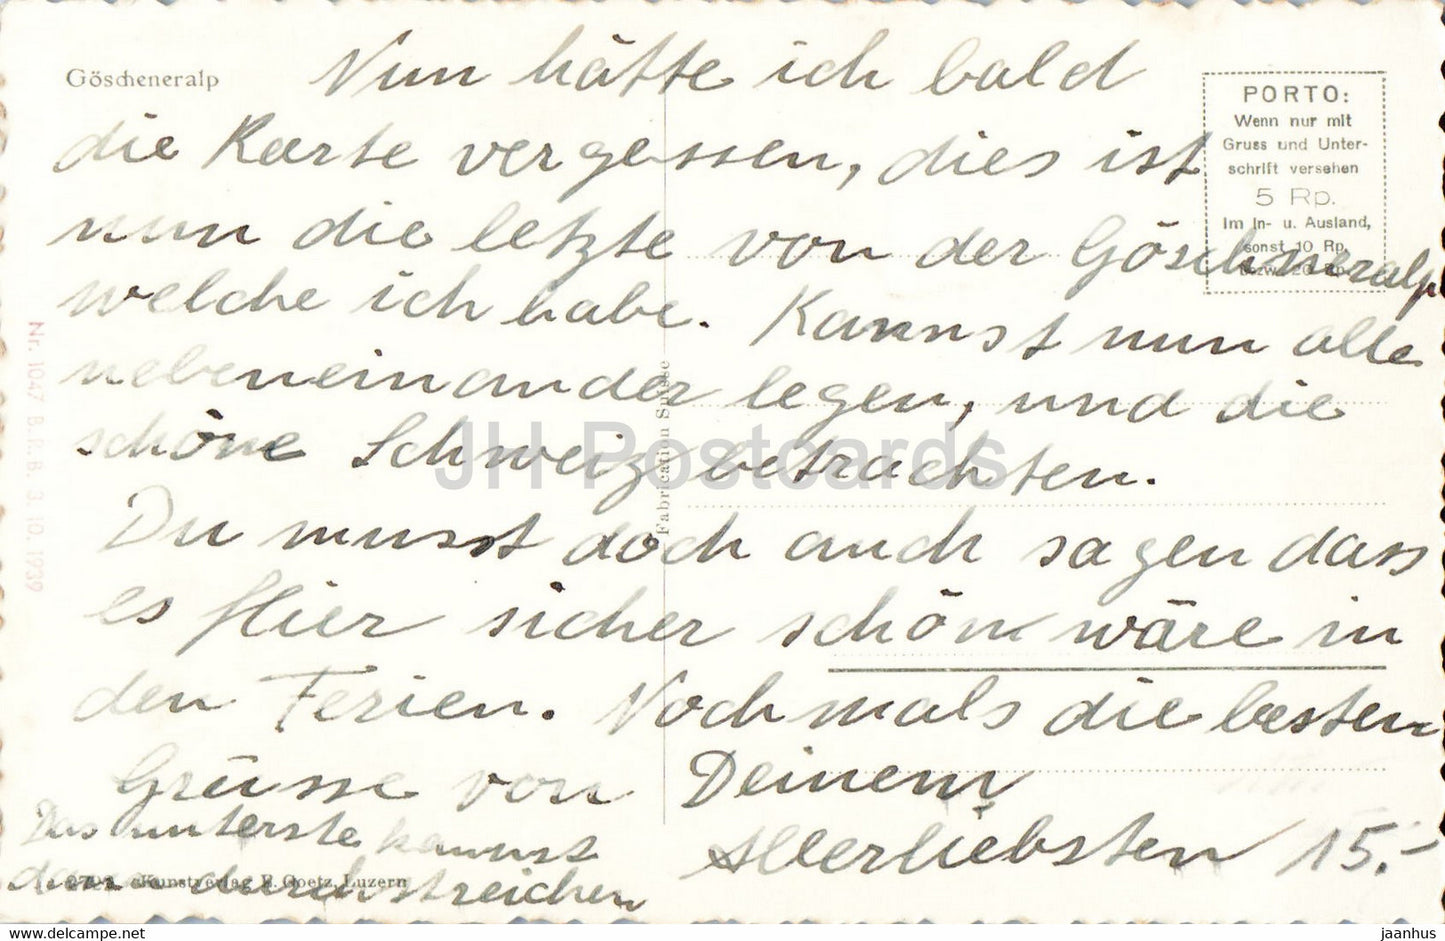 Göscheneralp
Nun hätte ich bald
die Karte vergessen, dies ist
nun die letzte von der Göscheneralp
welche ich habe. Kannst nun alle
nebeneinander legen, und die
schöne Schweiz betrachten.
Du musst doch auch sagen dass
es Hier sicher schön wäre in
den Ferien. Nochmals die besten
Grüsse von Deinem
Allerliebsten 15.-
Das unterste kannst
dann durchstreichen
PORTO:
Wenn nur mit
Gruss und Unter-
schrift versehen
5 Rp.
Im In- u. Ausland,
sonst 10 Rp.
bezw. 20 Rp.
Nr. 1047 B.R.B. 3.10.1939
Fabrication Suisse
2792 Kunstverlag E. Goetz, Luzern
JH Postcards
delcampe.net
jaanhus